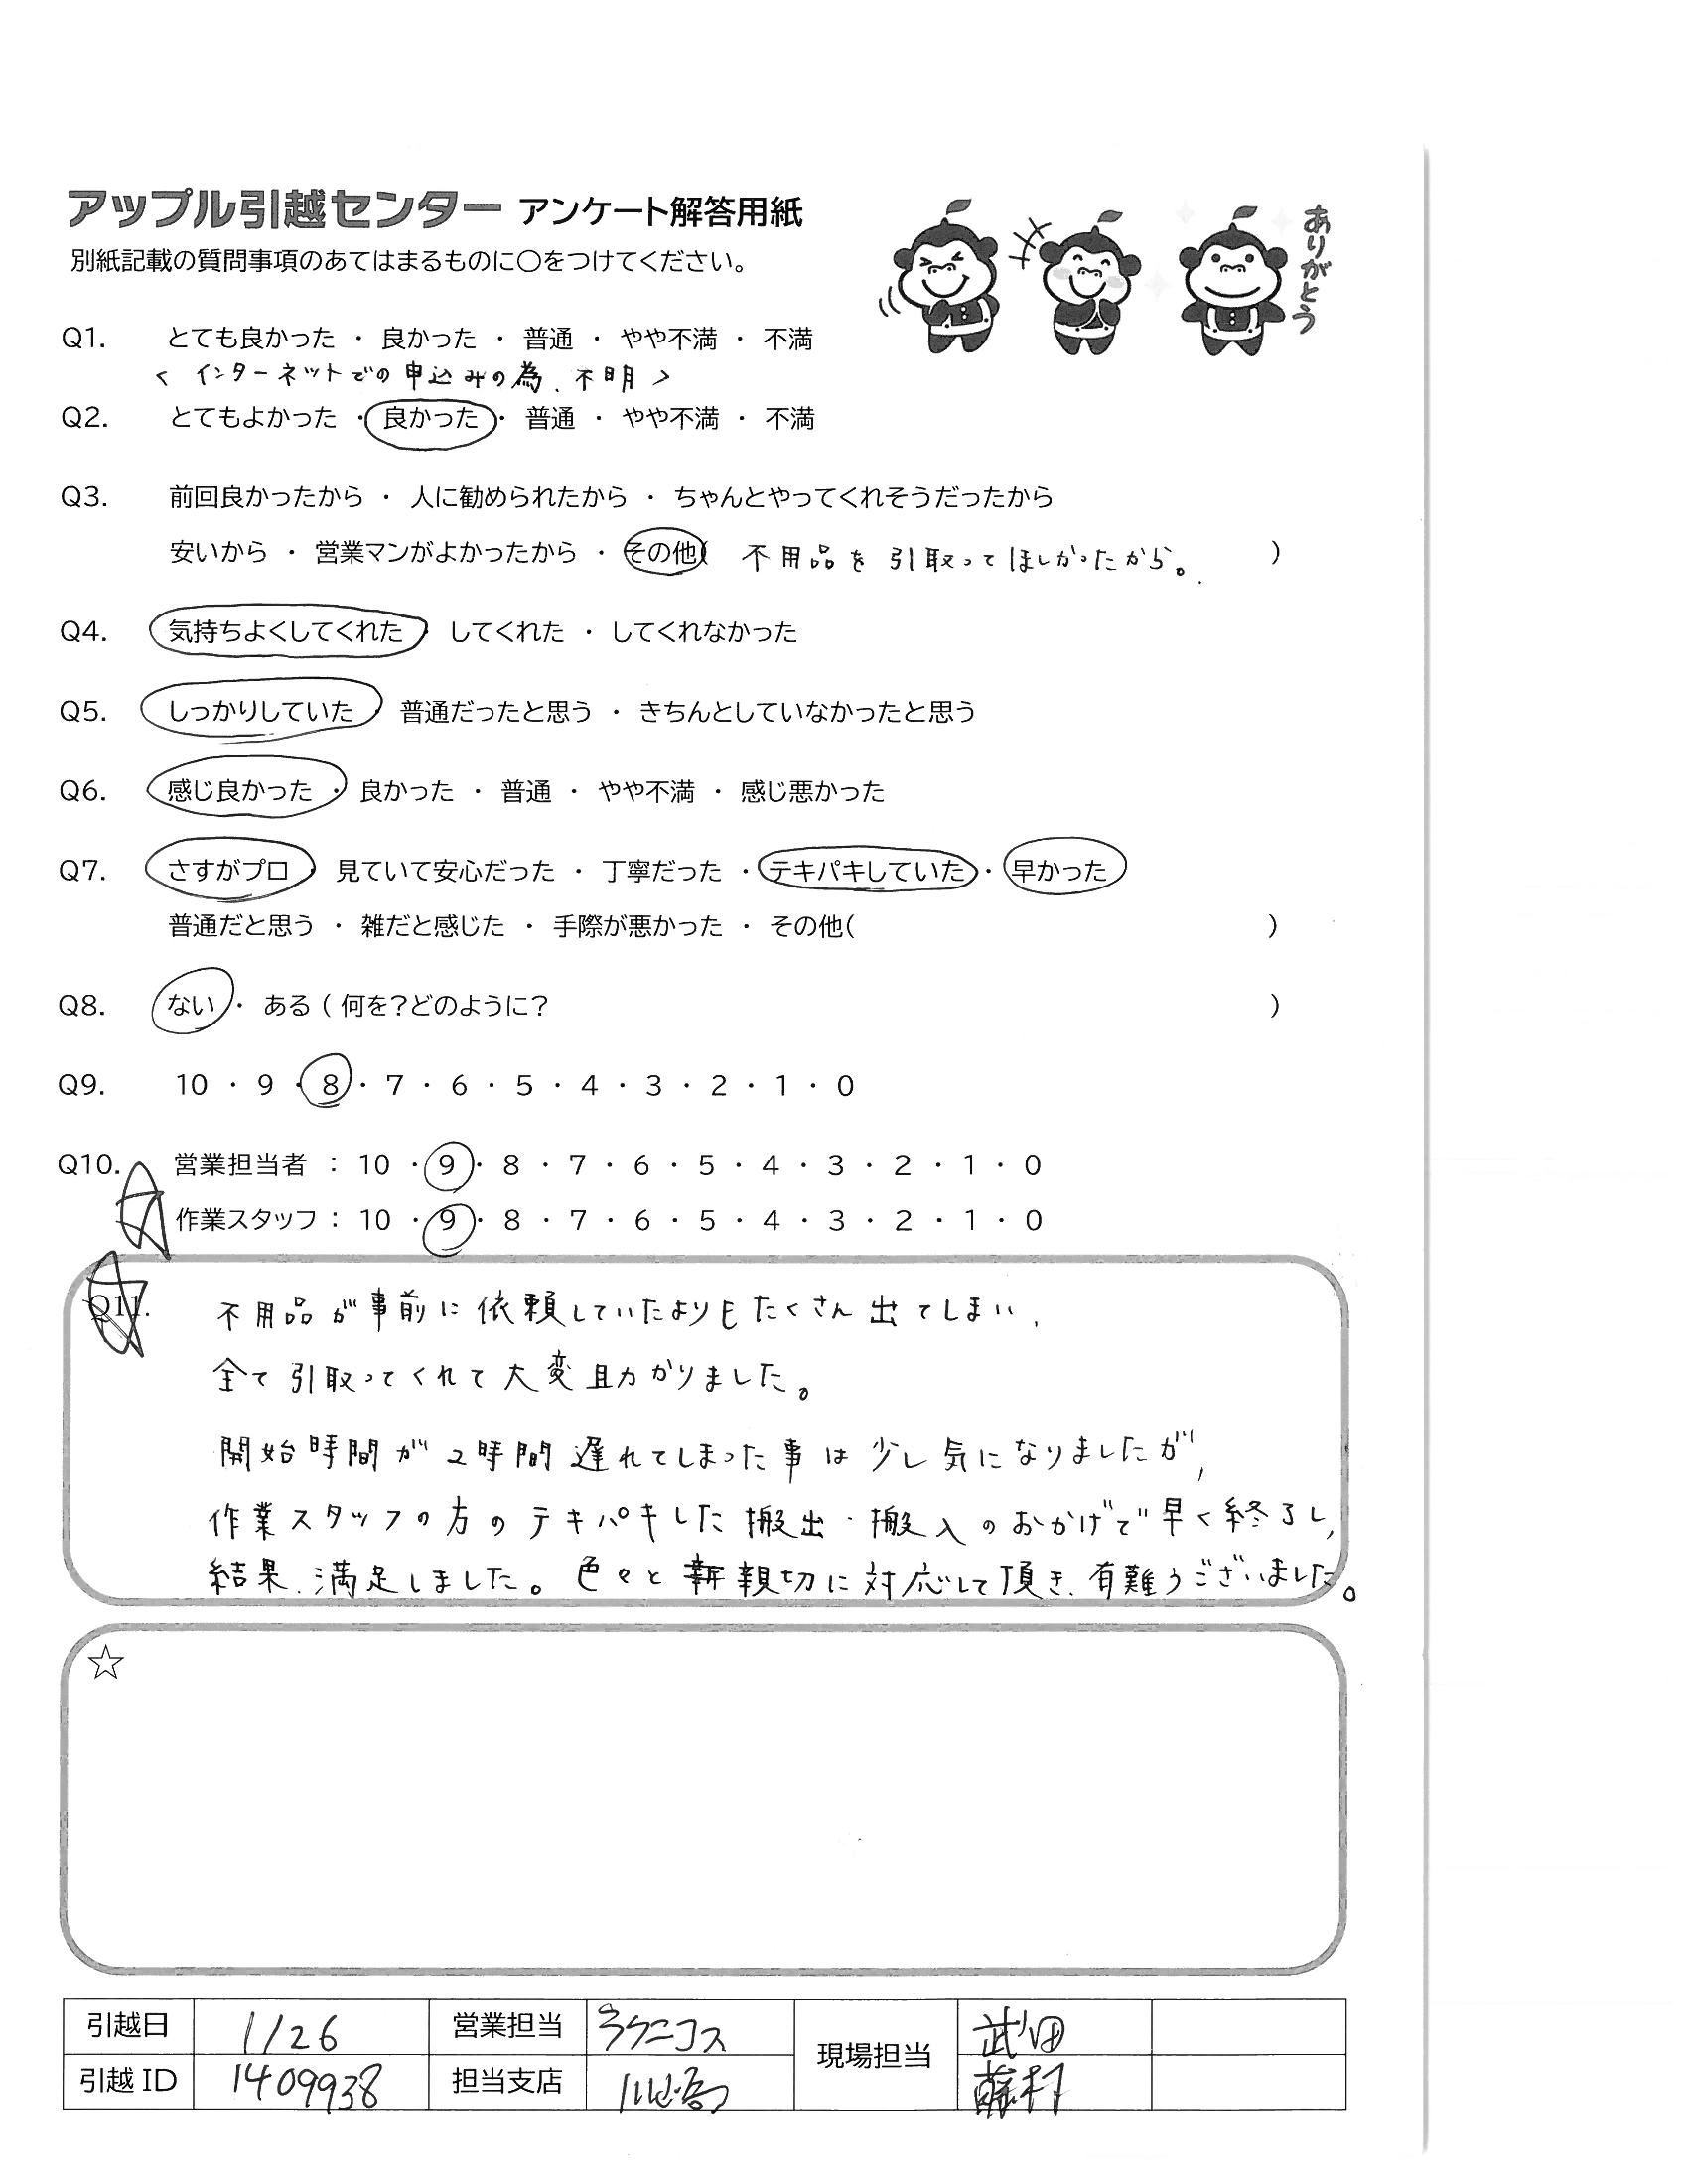 アップル引越センター アンケート解答用紙
別紙記載の質問事項のあてはまるものに○をつけてください。
ありがとう
Q1. とても良かった ・ 良かった ・ 普通 ・ やや不満 ・ 不満
< インターネットでの申込みの為、不明 >
Q2. とてもよかった ・ 良かった ・ 普通 ・ やや不満 ・ 不満
Q3. 前回良かったから ・ 人に勧められたから ・ ちゃんとやってくれそうだったから
安いから ・ 営業マンがよかったから ・ その他( 不用品を引取ってほしかったから。 )
Q4. 気持ちよくしてくれた ・ してくれた ・ してくれなかった
Q5. しっかりしていた 普通だったと思う ・ きちんとしていなかったと思う
Q6. 感じ良かった ・ 良かった ・ 普通 ・ やや不満 ・ 感じ悪かった
Q7. さすがプロ 見ていて安心だった ・ 丁寧だった ・ テキパキしていた ・ 早かった
普通だと思う ・ 雑だと感じた ・ 手際が悪かった ・ その他( )
Q8. ない ・ ある ( 何を?どのように? )
Q9. 10 ・ 9 ・ 8 ・ 7 ・ 6 ・ 5 ・ 4 ・ 3 ・ 2 ・ 1 ・ 0
Q10. 営業担当者 : 10 ・ 9 ・ 8 ・ 7 ・ 6 ・ 5 ・ 4 ・ 3 ・ 2 ・ 1 ・ 0
作業スタッフ : 10 ・ 9 ・ 8 ・ 7 ・ 6 ・ 5 ・ 4 ・ 3 ・ 2 ・ 1 ・ 0
Q11. 不用品が事前に依頼していたよりもたくさん出てしまい、
全て引取ってくれて大変助かりました。
開始時間が2時間遅れてしまった事は少し気になりましたが、
作業スタッフの方のテキパキした搬出・搬入のおかげで早く終了し、
結果、満足しました。色々と親切に対応して頂き、有難うございました。
☆
引越日 1/26 営業担当 ラクニコス 現場担当 武田
引越ID 1409938 担当支店 川崎 藤村